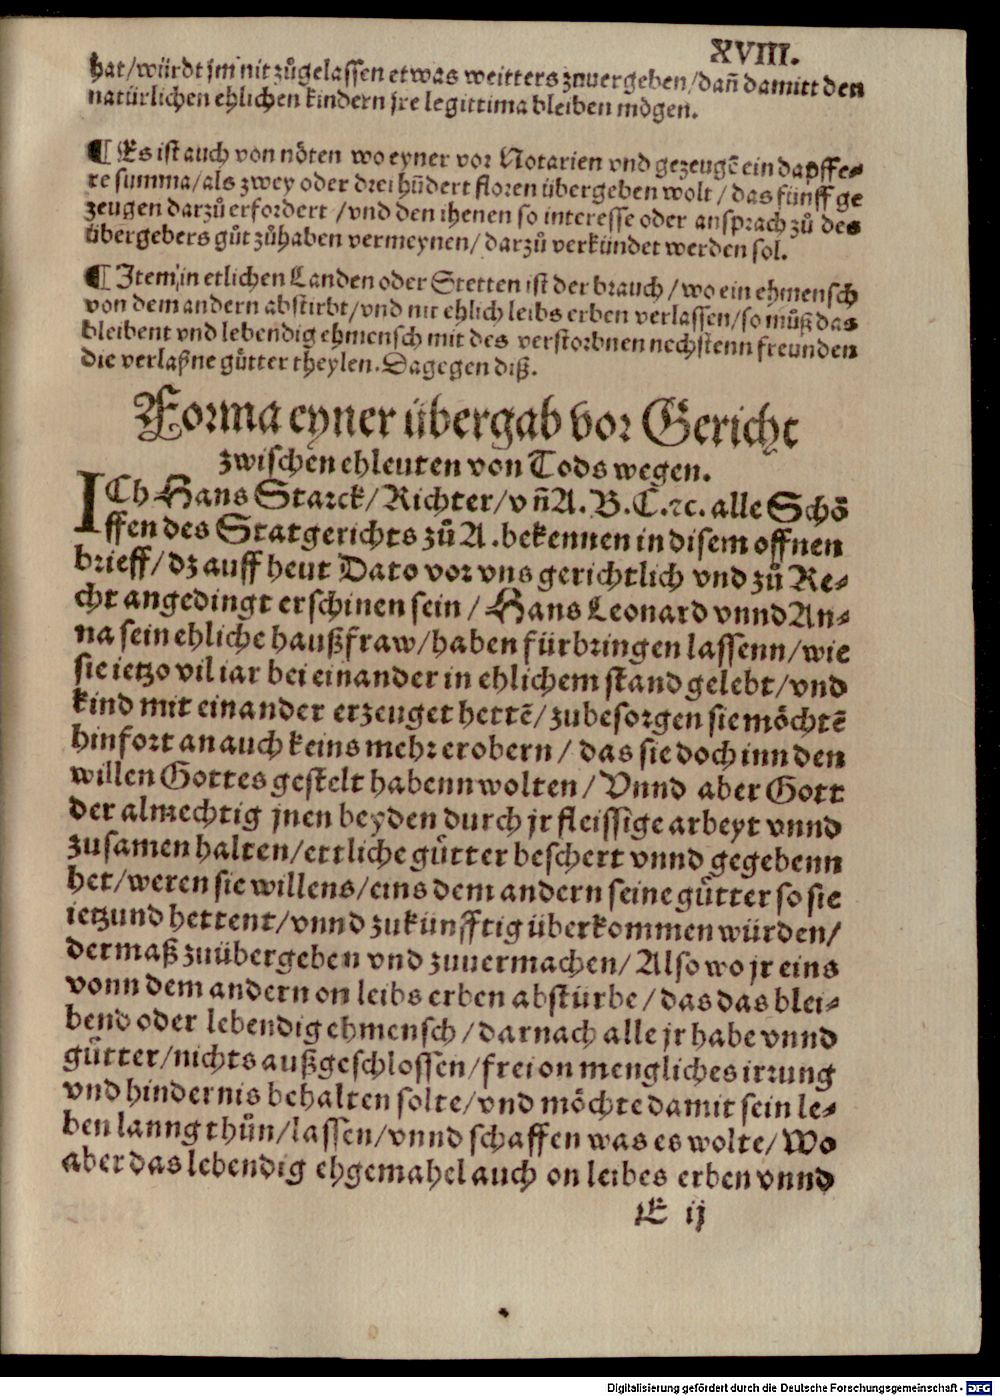 XVIII.
hat/würdt jm nit zůgelassen etwas weitters zuuergeben/dañ damitt den
natürlichen ehlichen kindern jre legittima bleiben mögen.
¶ Es ist auch von nöten wo eyner vor Notarien vnd gezeugē ein dapffe⸗
re summa/als zwey oder drei hūdert floren übergeben wolt/das fünff ge
zeugen darzů erfordert/vnd den ihenen so interesse oder ansprach zů des
übergebers gůt zůhaben vermeynen/darzů verkündet werden sol.
¶ Item in etlichen Landen oder Stetten ist der brauch/wo ein ehmensch
von dem andern abstirbt/vnd nit ehlich leibs erben verlassen/so můß das
bleibent vnd lebendig ehmensch mit des verstorbnen nechstenn freunden
die verlaßne gůtter theylen. Dagegen diß.
Forma eyner übergab vor Gericht
zwischen ehleuten von Tods wegen.
ICh Hans Starck/Richter/vñ A. B. C.ꝛc. alle Schö
ffen des Statgerichts zů A. bekennen in disem offnen
brieff/dz auff heut Dato vor vns gerichtlich vnd zů Re⸗
cht angedingt erschinen sein/Hans Leonard vnnd An⸗
na sein ehliche haußfraw/haben fürbringen lassenn/wie
sie ietzo vil iar bei einander in ehlichem stand gelebt/vnd
kind mit einander erzeuget hettē/zubesorgen sie möchtē
hinfort an auch keins mehr erobern/das sie doch inn den
willen Gottes gestelt habenn wolten/Vnnd aber Gott
der almechtig jnen beyden durch jr fleissige arbeyt vnnd
zusamen halten/ettliche gůtter beschert vnnd gegebenn
het/weren sie willens/eins dem andern seine gůtter so sie
ietzund hettent/vnnd zukünfftig überkommen würden/
dermaß zuübergeben vnd zuuermachen/Also wo jr eins
vonn dem andern on leibs erben abstürbe/das das blei⸗
bend oder lebendig ehmensch/darnach alle jr habe vnnd
gůtter/nichts außgeschlossen/frei on mengliches irrung
vnd hindernis behalten solte/vnd möchte damit sein le⸗
ben lanng thůn/lassen/vnnd schaffen was es wolte/Wo
aber das lebendig ehgemahel auch on leibes erben vnnd
E ij
Digitalisierung gefördert durch die Deutsche Forschungsgemeinschaft - DFG